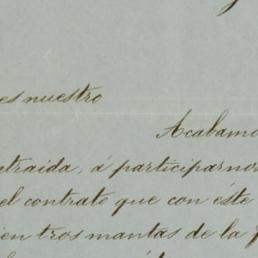 es nuestro
Acabamo
etraida, á participarnos
el contrato que con éste
ien tros mantas de la f